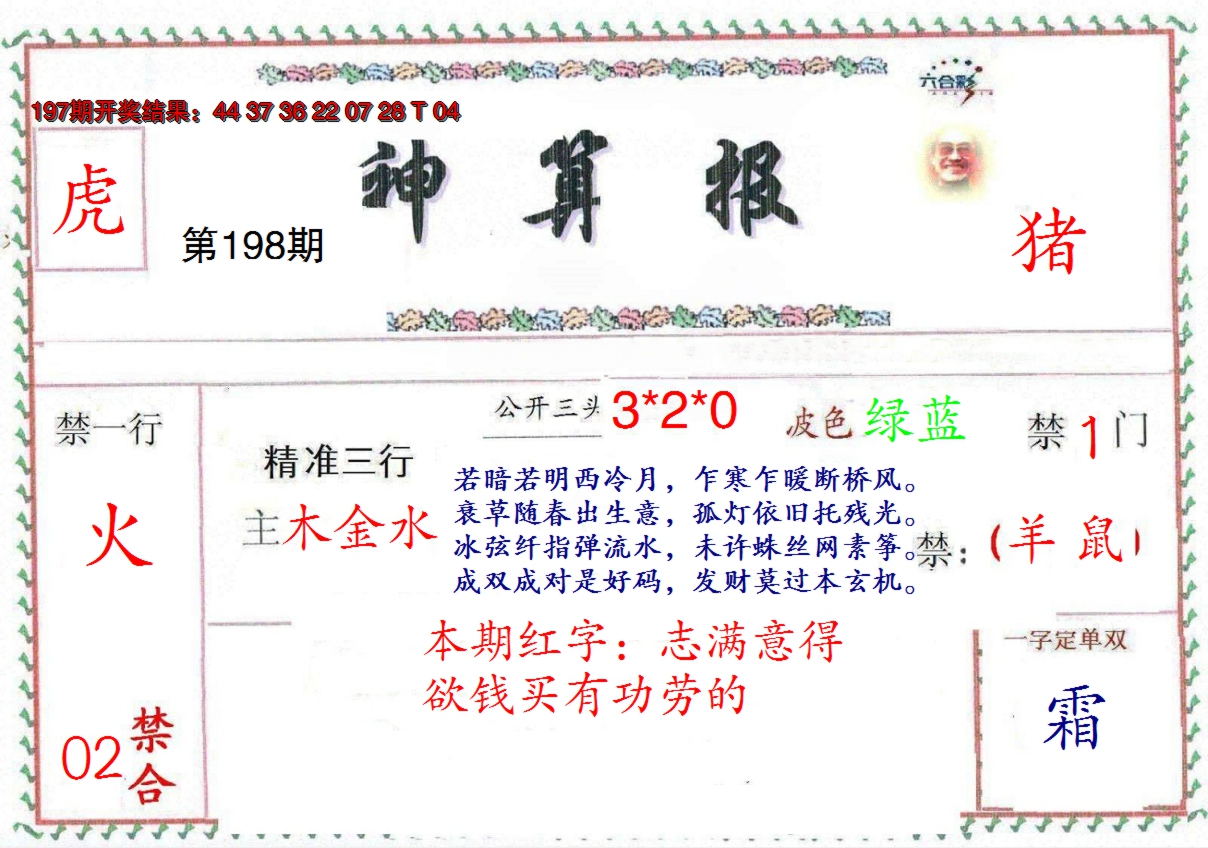 197期开奖结果：44 37 36 22 07 28 T 04
六合彩
虎
神算报
第198期
猪
禁一行
火
02
禁合
精准三行
主木金水
公开三头
3*2*0
波色 绿蓝
禁1门
若暗若明西冷月，乍寒乍暖断桥风。
衰草随春出生意，孤灯依旧托残光。
冰弦纤指弹流水，未许蛛丝网素筝。
成双成对是好码，发财莫过本玄机。
禁：(羊 鼠)
本期红字：志满意得
欲钱买有功劳的
一字定单双
霜